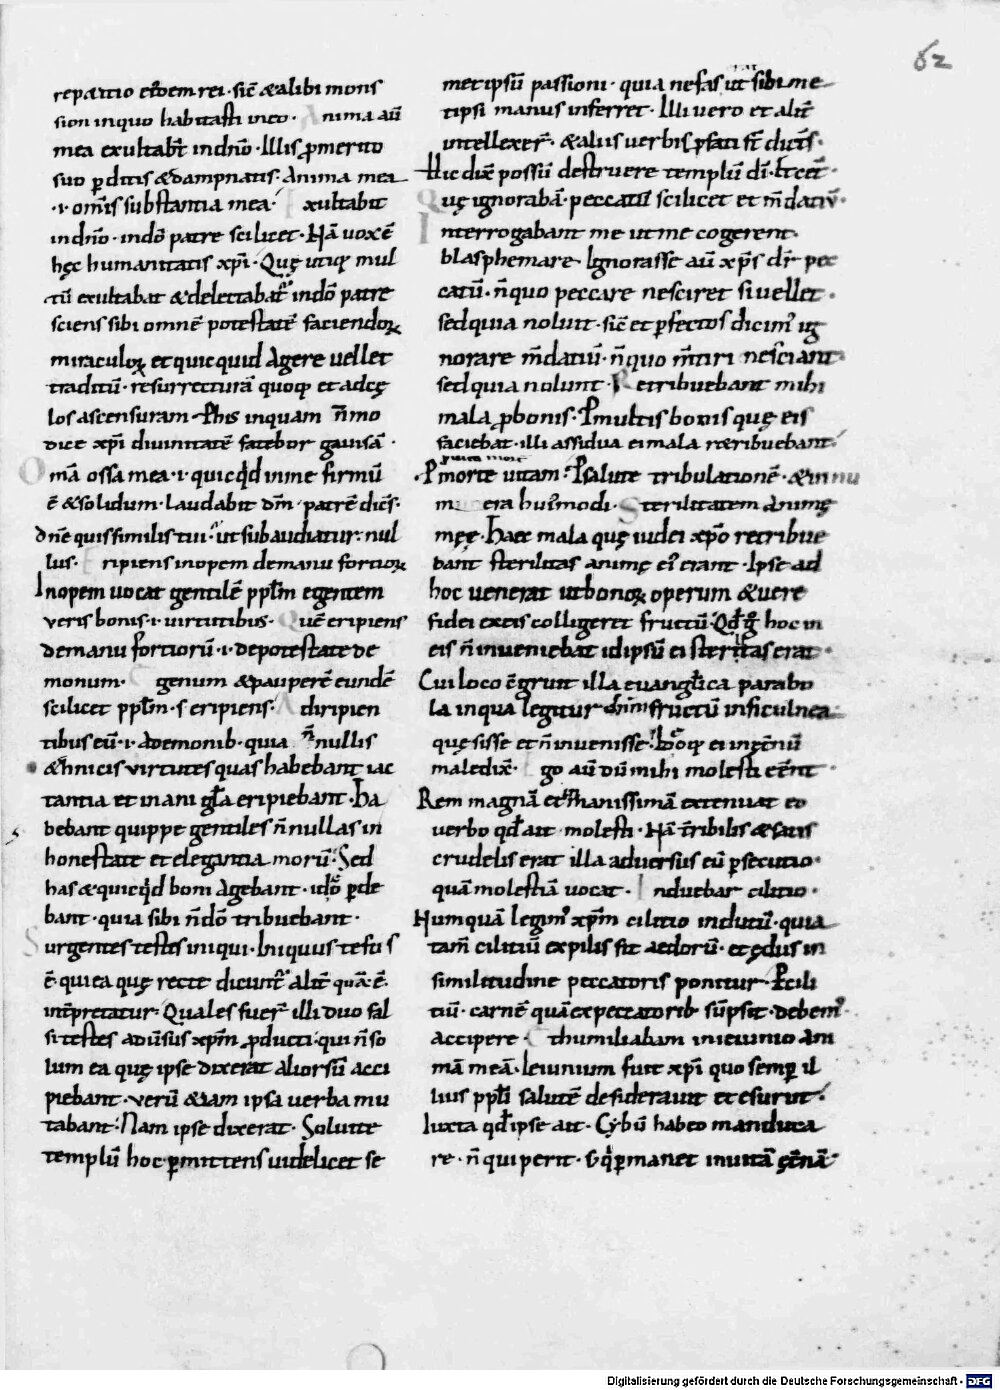 62
repetitio eiusdem rei · sic̄ & alibi mons
sion in quo habitasti in eo · Anima aū
mea exultab̄t in dn̄o · Illis ꝓ merito
suo ꝑditis & dampnatis · Anima mea
· i · om̄is substantia mea · Exultabit
in dn̄o · in dō patre scilicet · Hāc uox ē
hęc humanitatis xp̄i · Quę utiqꝫ mul
tū exultabat & delectabat᷑ in dō patre
sciens sibi omnē potestatē faciendoꝝ
miraculoꝝ et quicquid agere uellet
traditū · resurrecturā quoqꝫ et ad cę
los ascensuram · P his inquam n̄ mo
dice xp̄i diuinitatē fatebor gauisā ·
Om̄a ossa mea · i · quicq̇d in me firmū
ē & solidum · Laudabit dn̄m · patrē dic̄s ·
Dn̄e quis similis tui · ut subaudiatur · nul
lus · Eripiens inopem de manu fortioꝝ
Inopem uocat gentilē ppl̄m egentem
ueris bonis · i · uirtutibus · Quē eripiens
de manu fortiorū · i · de potestate de
monum · Egenum & pauperē eundē
scilicet ppl̄m · s eripiens · A diripien
tibus eū · i · a demonib · quia n̄nullis
& hnicis uirtutes quas habebant iac
tantia et inani gl̄a eripiebant · Ha
bebant quippe gentiles n̄nullas in
honestate et elegantia morū · Sed
has & quicq̇d boni agebant · idō ꝑde
bant · quia sibi n̄ dō tribuebant ·
Surgentes testes iniqui · Iniquus testis
ē · qui ea quę recte dicunt᷑ alit̄ quā ē ·
int̄pretatur · Quales fuer̄ illi duo fal
si testes aduersus xp̄m ꝓducti · qui n̄ so
lum ea quę ipse dixerat aliorsū acci
piebant · uerū & iam ipsa uerba mu
tabant · Nam ipse dixerat · Soluite
templū hoc ꝑmittens uidelicet se
met ipsū passioni · quia nefas ut sibi me
tipsi manus inferret · Illi uero et alit̄
intellexer̄ · & aliis uerbis ꝓfati st̄ dic̄ts ·
Hic dix̄ possū destruere templū dī · & cet̄
Quę ignorabā · peccatū scilicet et m̄daciū ·
Interrogabant me ut me cogerent
blasphemare · Ignorasse aū xp̄s dr̄ pec
catū · n̄ quo peccare nesciret si uellet ·
sed quia noluit · sic̄ et ꝑfectos dicim᷒ ig
norare m̄daciū · n̄ quo m̄tiri nesciant
sed quia nolunt · Retribuebant mihi
mala ꝓ bonis · P multis bonis quę eis
faciebat · illi assidua ei mala r&ribuebant ·
· P morte uitam · P salute tribulationē · & in nu
mera hui᷒modi · Sterilitatem animę
męę · Haec mala quę iudei xp̄o retribue
bant sterilitas animę ei᷒ erant · Ipse ad
hoc uenerat ut bonoꝝ operum & uere
fidei ex eis colligeret fructū · Qd̄ g̊ hoc in
eis n̄ inueniebat id ipsū ei sterilitas erat ·
Cui loco c̄gruit illa euangl̄ica parabo
la in qua legitur dn̄m fructū in ficulnea
quęsisse et n̄ inuenisse · Ideoqꝫ ei in ęt̄nū
maledix̄ · Ego aū dū mihi molesti eēnt ·
Rem magnā et inmanissimā extenuat eo
uerbo qd̄ ait molesti · Nā t̄ribilis & satis
crudelis erat illa aduersus eū ꝑsecutio ·
quā molestiā uocat · Induebar cilitio ·
Numquā legim᷒ xp̄m cilitio indutū · quia
tam̄ cilitiū ex pilis fit aedorū · et ędus in
similitudine peccatoris ponitur · P cili
tiū · carnē quā ex peccatorib sūpsit · debem᷒
accipere · Et humiliabam in ieiunio am
mā meā · Ieiunium fuit xp̄i quo semꝑ il
lius ppl̄i salutē desiderauit et esurut ·
Iuxta qd̄ ipse ait · Cybū habeo manduca
re · n̄ qui perit · s; q̇ ꝑmanet in uitā ęt̄nā ·
Digitalisierung gefördert durch die Deutsche Forschungsgemeinschaft - DFG